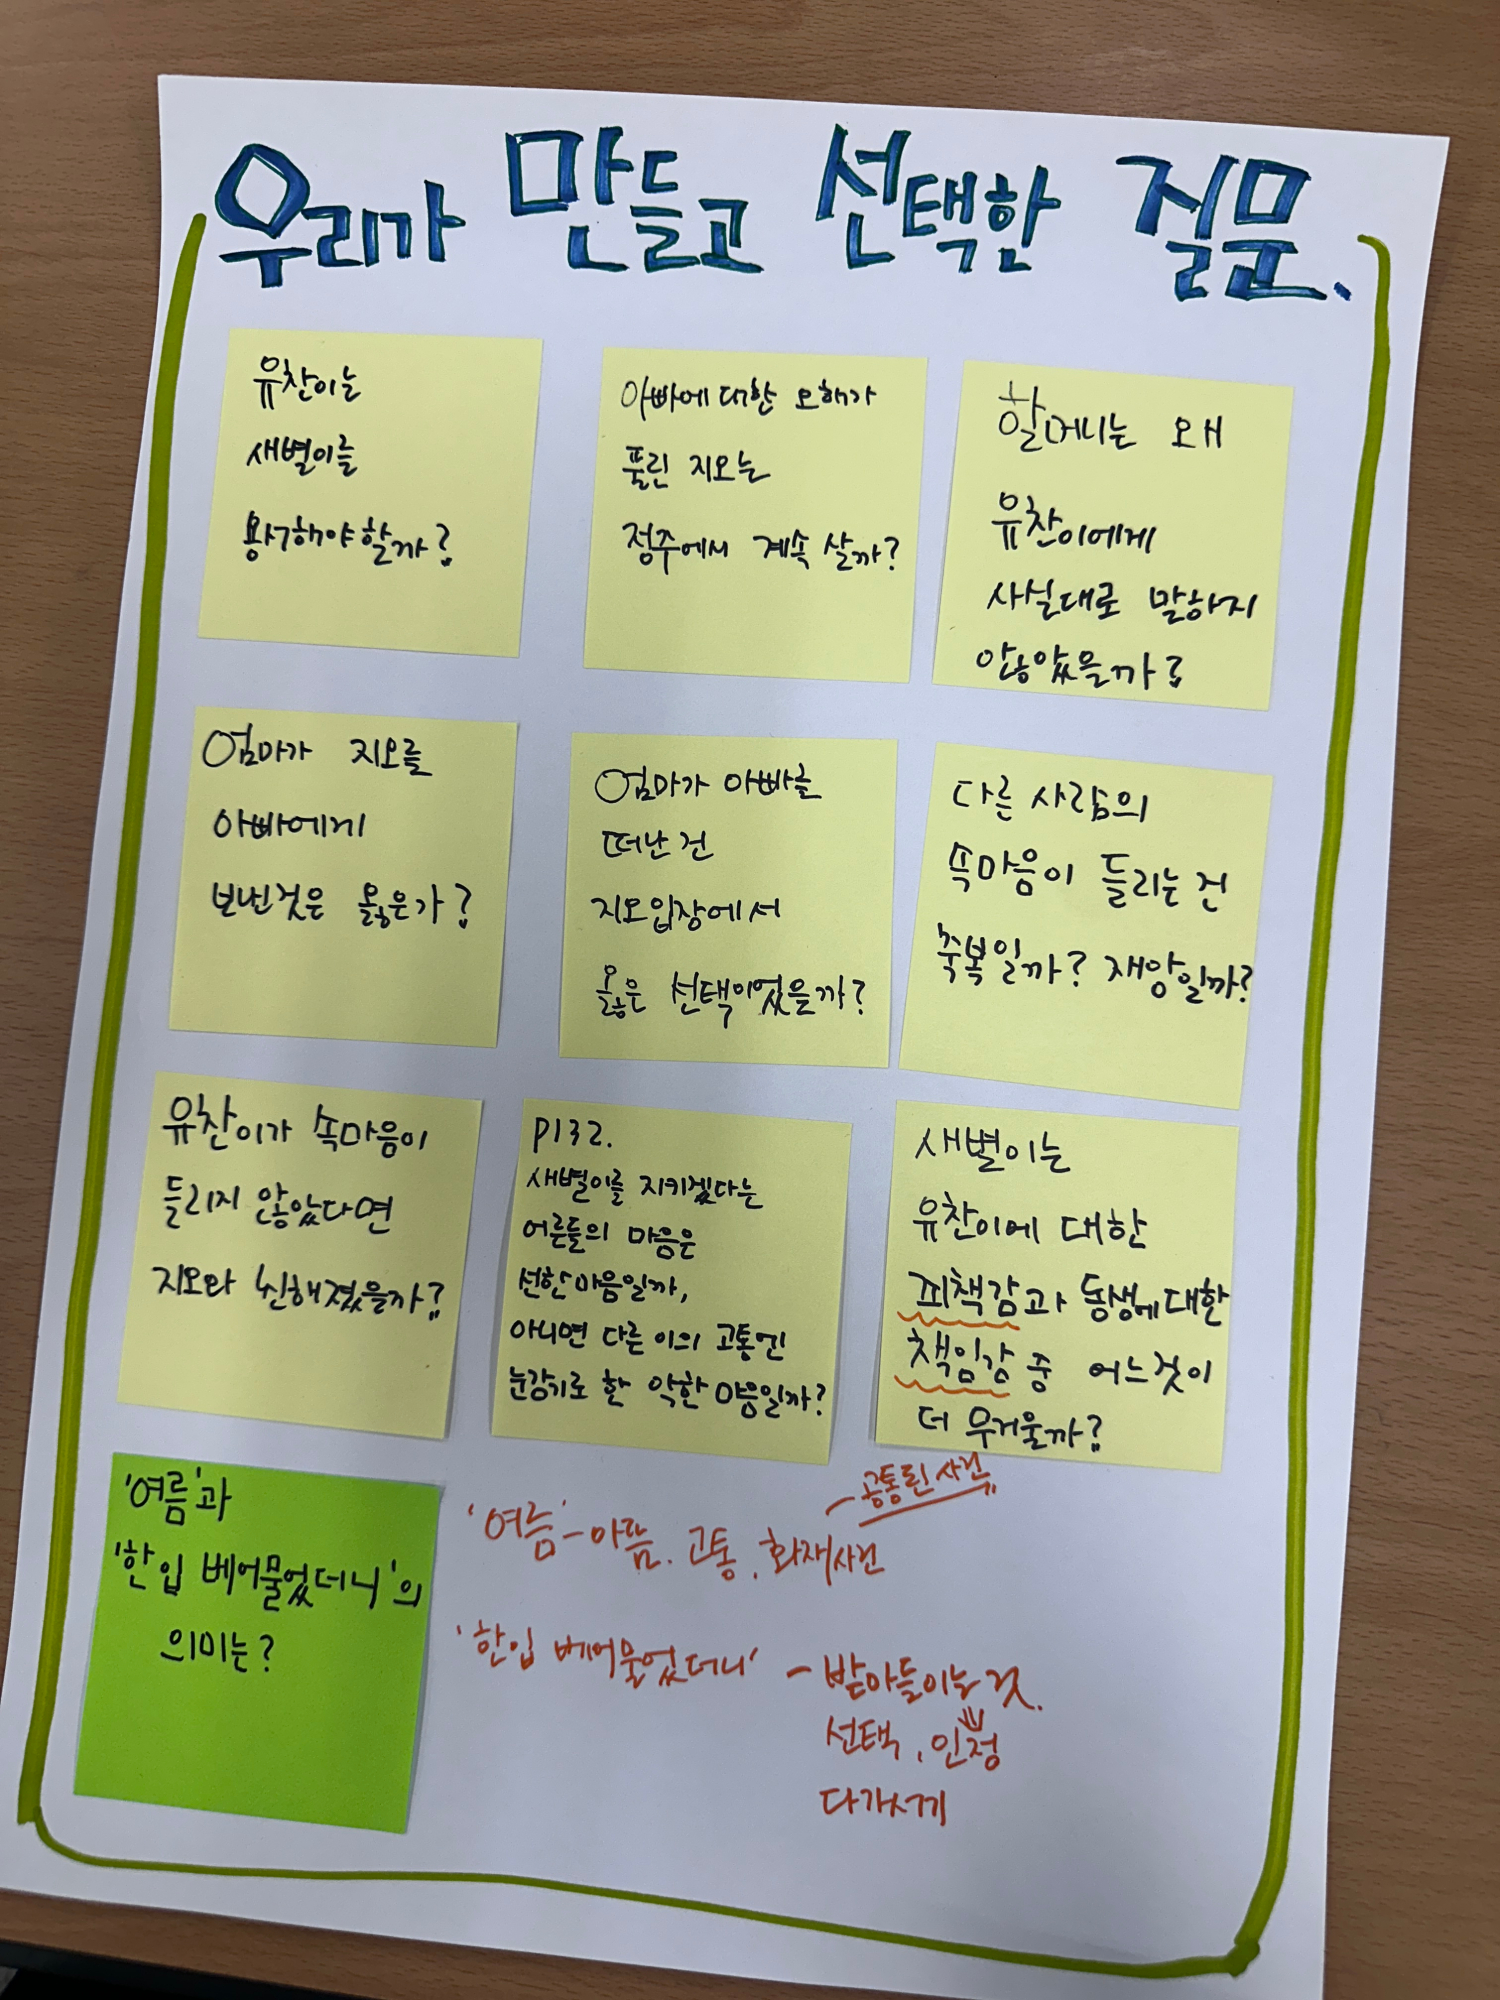 우리가 만들고 선택한 질문.
유찬이는
새별이를
용서해야할까?
아빠에대한 오해가
풀린 지오는
정주에서 계속 살까?
할머니는 왜
유찬이에게
사실대로 말하지
않았을까?
엄마가 지오를
아빠에게
보낸것은 옳은가?
엄마가 아빠를
떠난건
지오입장에서
옳은 선택이었을까?
다른 사람의
속마음이 들리는건
축복일까? 재앙일까?
유찬이가 속마음이
들리지 않았다면
지오와 친해졌을까?
P132.
새별이를 지키겠다는
어른들의 마음은
선한마음일까,
아니면 다른 이의 고통엔
눈감기로 한 악한 마음일까?
새별이는
유찬이에 대한
죄책감과 동생에대한
책임감 중 어느것이
더 무거울까?
'여름'과
'한입 베어물었더니'의
의미는?
공통된 사건
'여름' - 아픔. 고통. 화재사건
'한입 베어물었더니' - 받아들이는 것.
선택, 인정
다가서기